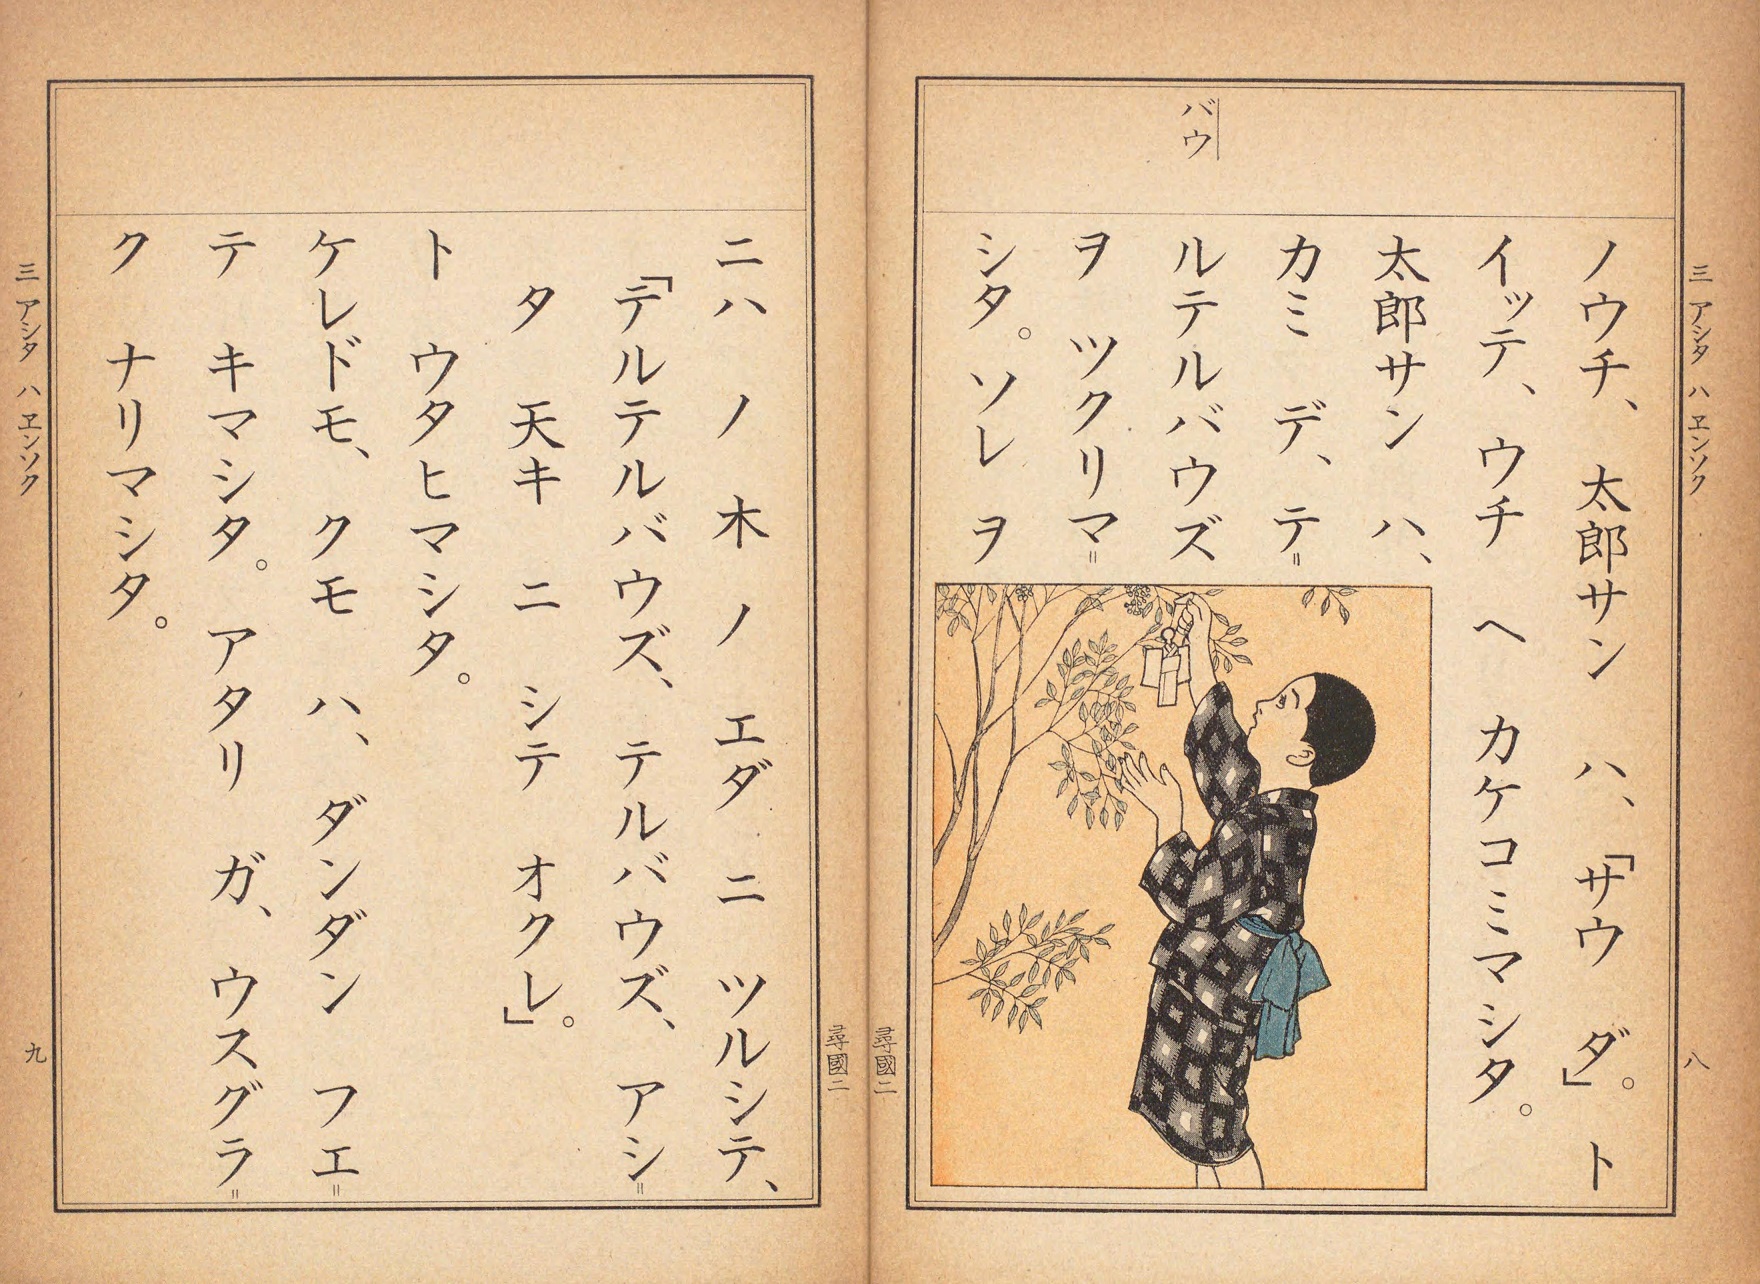 三 アシタ ハ ヱンソク
八
バウ
ノウチ、太郎サン ハ、「サウ ダ」。ト
イッテ、ウチ ヘ カケコミマシタ。
太郎サン ハ、
カミ デ、テ＝
ルテルバウズ
ヲ ツクリマ＝
シタ。ソレ ヲ
尋國二
尋國二
ニハ ノ 木 ノ エダ ニ ツルシテ、
「テルテルバウズ、テルバウズ、アシ＝
タ 天キ ニ シテ オクレ」。
ト ウタヒマシタ。
ケレドモ、クモ ハ、ダンダン フエ＝
テ キマシタ。アタリ ガ、ウスグラ＝
ク ナリマシタ。
三 アシタ ハ ヱンソク
九